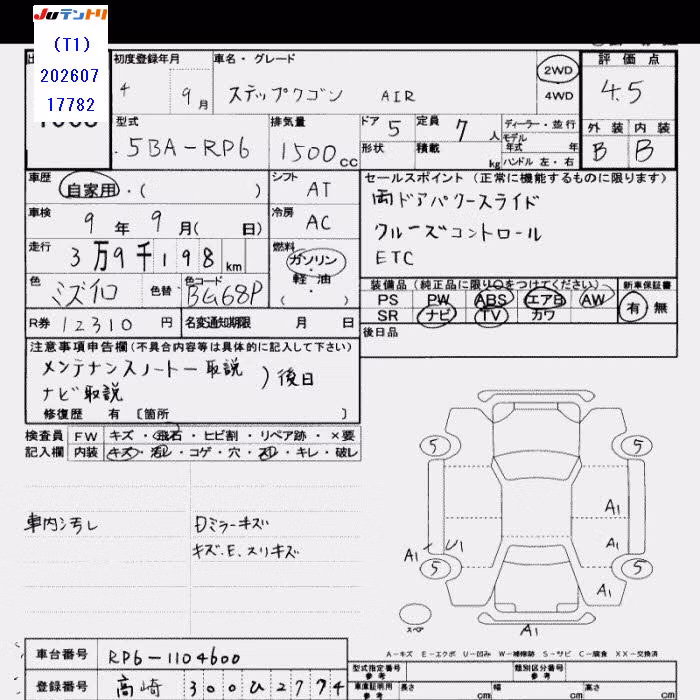 Juテントリ
(T1)
202607
17782
初度登録年月
4 9月
車名・グレード
ステップワゴン AIR
2WD
4WD
評価点
4.5
外装 内装
B B
型式
5BA-RP6
排気量
1500cc
ドア 5
形状
定員 7人
積載 kg
ディーラー・並行
モデル
年式 年
ハンドル 左・右
車歴
自家用・( )
シフト
AT
車検
9年9月( 日)
冷房
AC
走行
3万9千198km
燃料
ガソリン・
軽油
( )
色
ミズイロ
色替
色コード
BG68P
R券 12310円
名変通知期限 月 日
セールスポイント(正常に機能するものに限ります)
両ドアパワースライド
クルーズコントロール
ETC
装備品(純正品に限り○をつけてください)
PS PW ABS エアB AW
SR ナビ TV カワ
新車保証書
有・無
後日品
注意事項申告欄(不具合内容等は具体的に記入して下さい)
メンテナンスノート 取説
ナビ取説
)後日
修復歴 有 [箇所 ]
検査員
記入欄
FW キズ・飛石・ヒビ割・リペア跡・×要
内装 キズ・汚レ・コゲ・穴・スリ・キレ・破レ
車内汚レ
Dミラーキズ
キズ.E.スリキズ
5 5
A1
A1
A1 U1
5 5
A1
スペア
A1
A-キズ E-エクボ U-凹み W-補修跡 S-サビ C-腐食 XX-交換済
車台番号 RP6-1104600
登録番号 高崎 300ひ2774
型式指定番号
参考
類別区分番号
参考
車庫証明用
参考
長さ cm 幅 cm 高さ cm